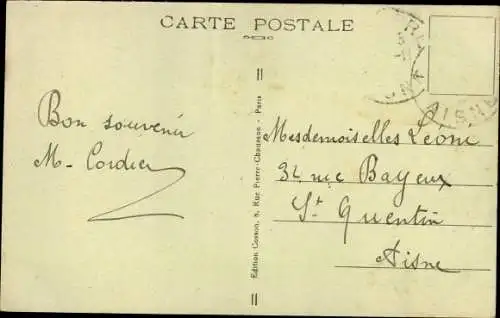 CARTE POSTALE
Bon souvenir
M. Cordier
Edition Cosson, 8, Rue Pierre-Chausson - Paris
Mesdemoiselles Léoni
32 rue Bayeux
St Quentin
Aisne
AISNE